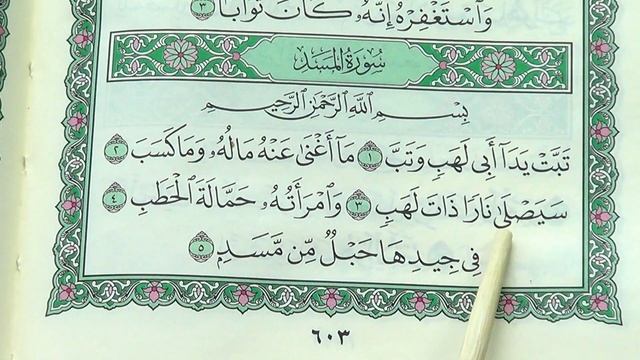 وَٱسْتَغْفِرْهُ إِنَّهُۥ كَانَ تَوَّابًۢا ٣
سُورَةُ المَسَدِ
بِسْمِ ٱللَّهِ ٱلرَّحْمَٰنِ ٱلرَّحِيمِ
تَبَّتْ يَدَآ أَبِى لَهَبٍ وَتَبَّ ١ مَآ أَغْنَىٰ عَنْهُ مَالُهُۥ وَمَا كَسَبَ ٢
سَيَصْلَىٰ نَارًا ذَاتَ لَهَبٍ ٣ وَٱمْرَأَتُهُۥ حَمَّالَةَ ٱلْحَطَبِ ٤
فِى جِيدِهَا حَبْلٌ مِّن مَّسَدٍ ٥
٦٠٣